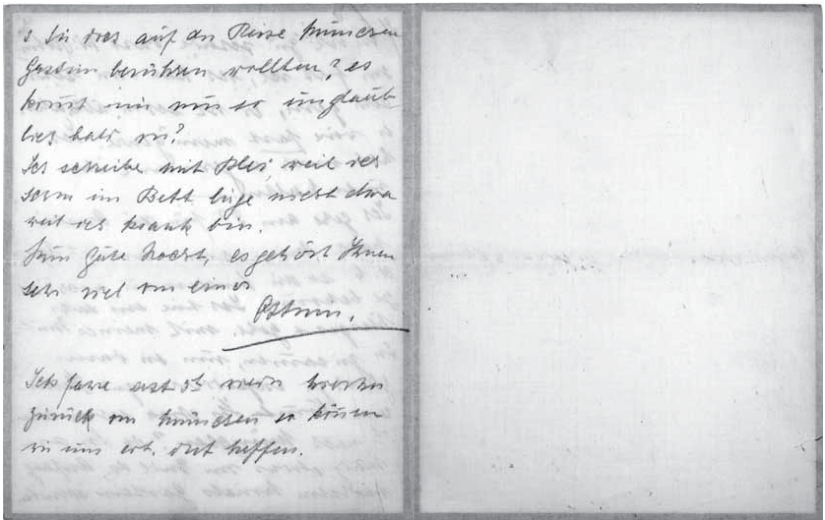 Sie dies auf der Reise München
Gastein berühren wollten? es
kommt mir nur so unglaub-
lich bald vor?
Ich schreibe mit Blei, weil ich
schon im Bett liege nicht etwa
weil ich krank bin.
Nun gute Nacht, es gehört Ihnen
sehr viel von einer
Ich fahre erst
zurück von München so können
wir uns evt. dort treffen.